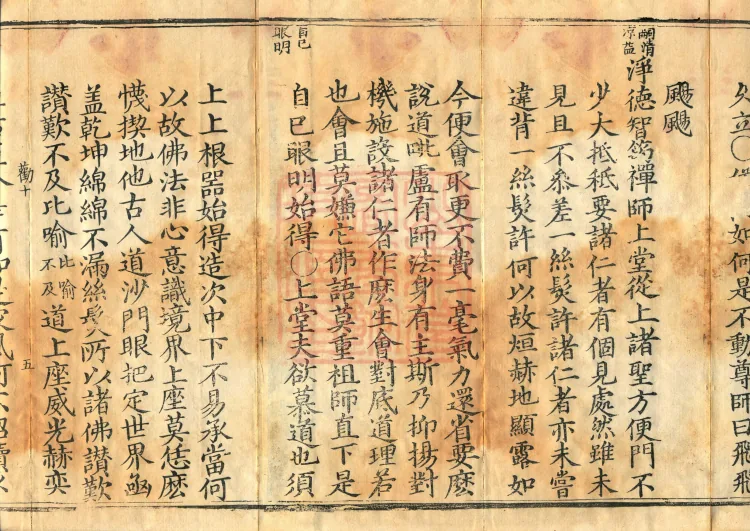 如何是不動尊師曰飛飛
颺颺
嗣清
涼益
淨德智筠禪師上堂從上諸聖方便門不
少大抵秪要諸仁者有個見處然雖未
見且不叅差一絲髮許諸仁者亦未嘗
違背一絲髮許何以故烜赫地顯露如
今便會取更不費一毫氣力還省要麽
說道毗盧有師法身有主斯乃抑揚對
機施設諸仁者作麽生會對底道理若
也會且莫嫌它佛語莫重祖師直下是
自己眼明始得〇上堂夫欲慕道也須
自己
眼明
上上根器始得造次中下不易承當何
以故佛法非心意識境界上座莫恁麽
懱揳地他古人道沙門眼把定世界凾
盖乾坤綿綿不漏絲髮所以諸佛讃歎
讃歎不及比喻比喻不及道上座威光赫奕
勸十
五